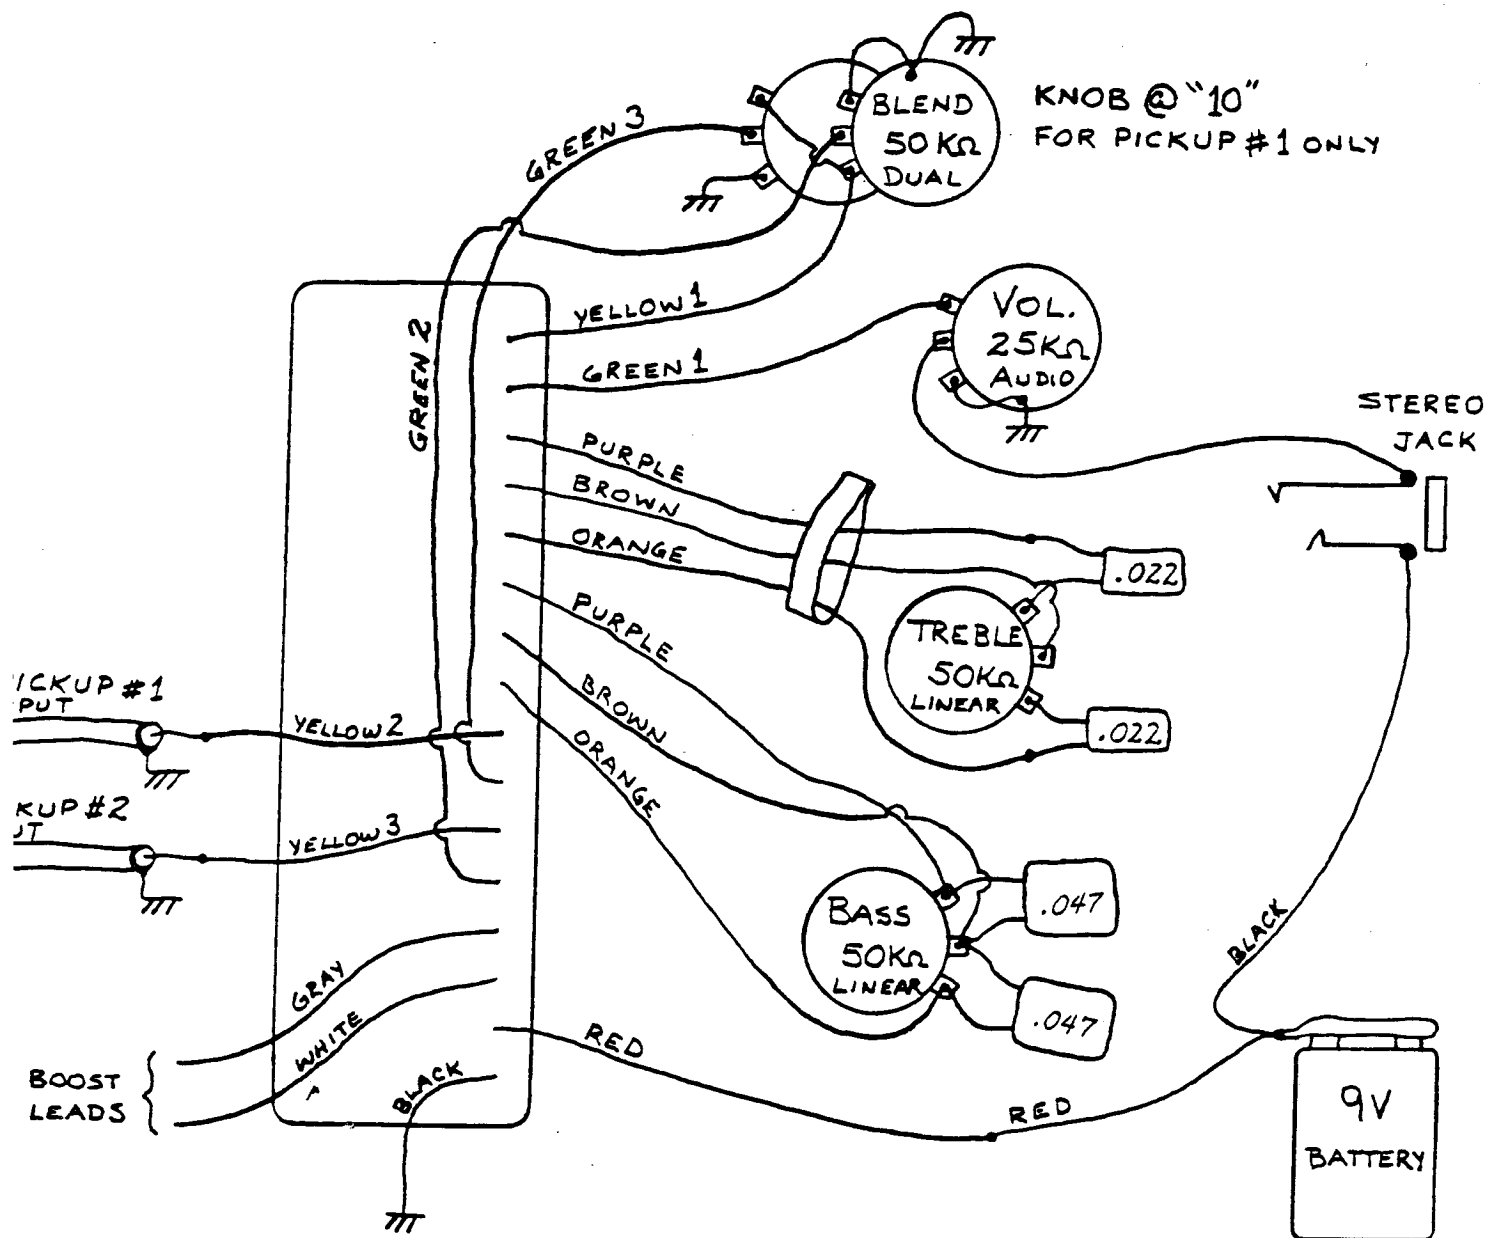 BLEND
50 KΩ
DUAL
KNOB @ "10"
FOR PICKUP #1 ONLY
GREEN 3
YELLOW 1
GREEN 1
GREEN 2
VOL.
25KΩ
AUDIO
STEREO
JACK
PURPLE
BROWN
ORANGE
.022
TREBLE
50KΩ
LINEAR
.022
PURPLE
BROWN
ORANGE
ICKUP #1
PUT
YELLOW 2
KUP #2
UT
YELLOW 3
BASS
50KΩ
LINEAR
.047
.047
GRAY
WHITE
BOOST
LEADS
BLACK
RED
RED
BLACK
9V
BATTERY